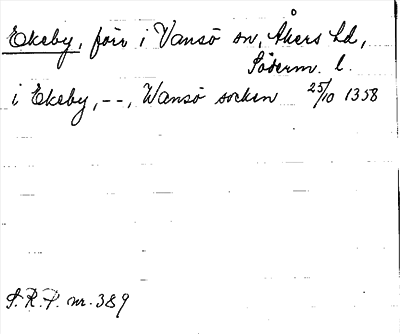 Ekeby, förr i Vansö sn, Åkers hd,
Söderm. l.
i Ekeby, --, Wansö socken 25/10 1358
S.R.P. nr. 389